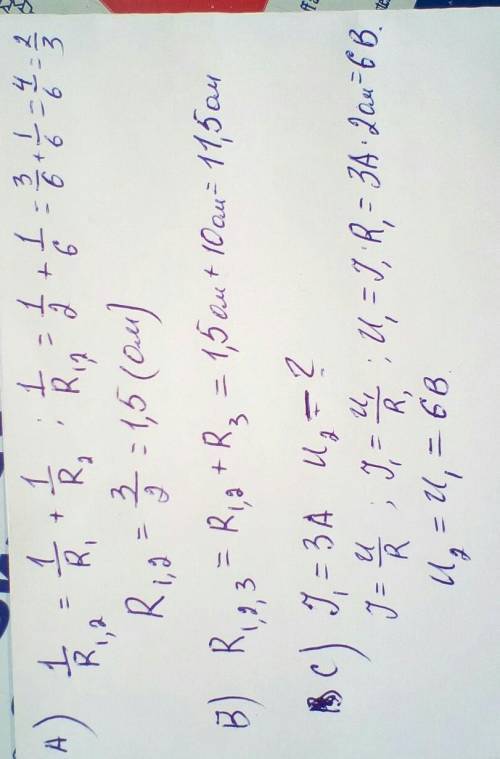 A) 1/R₁,₂ = 1/R₁ + 1/R₂ ; 1/R₁,₂ = 1/2 + 1/6 = 3/6 + 1/6 = 4/6 = 2/3
R₁,₂ = 3/2 = 1,5 (Ом)
B) R₁,₂,₃ = R₁,₂ + R₃ = 1,5 ом + 10 ом = 11,5 ом
C) I₁ = 3A U₂ - ?
I = U/R ; I₁ = U₁/R₁ ; U₁ = I₁ · R₁ = 3A · 2 ом = 6 В.
U₂ = U₁ = 6 В